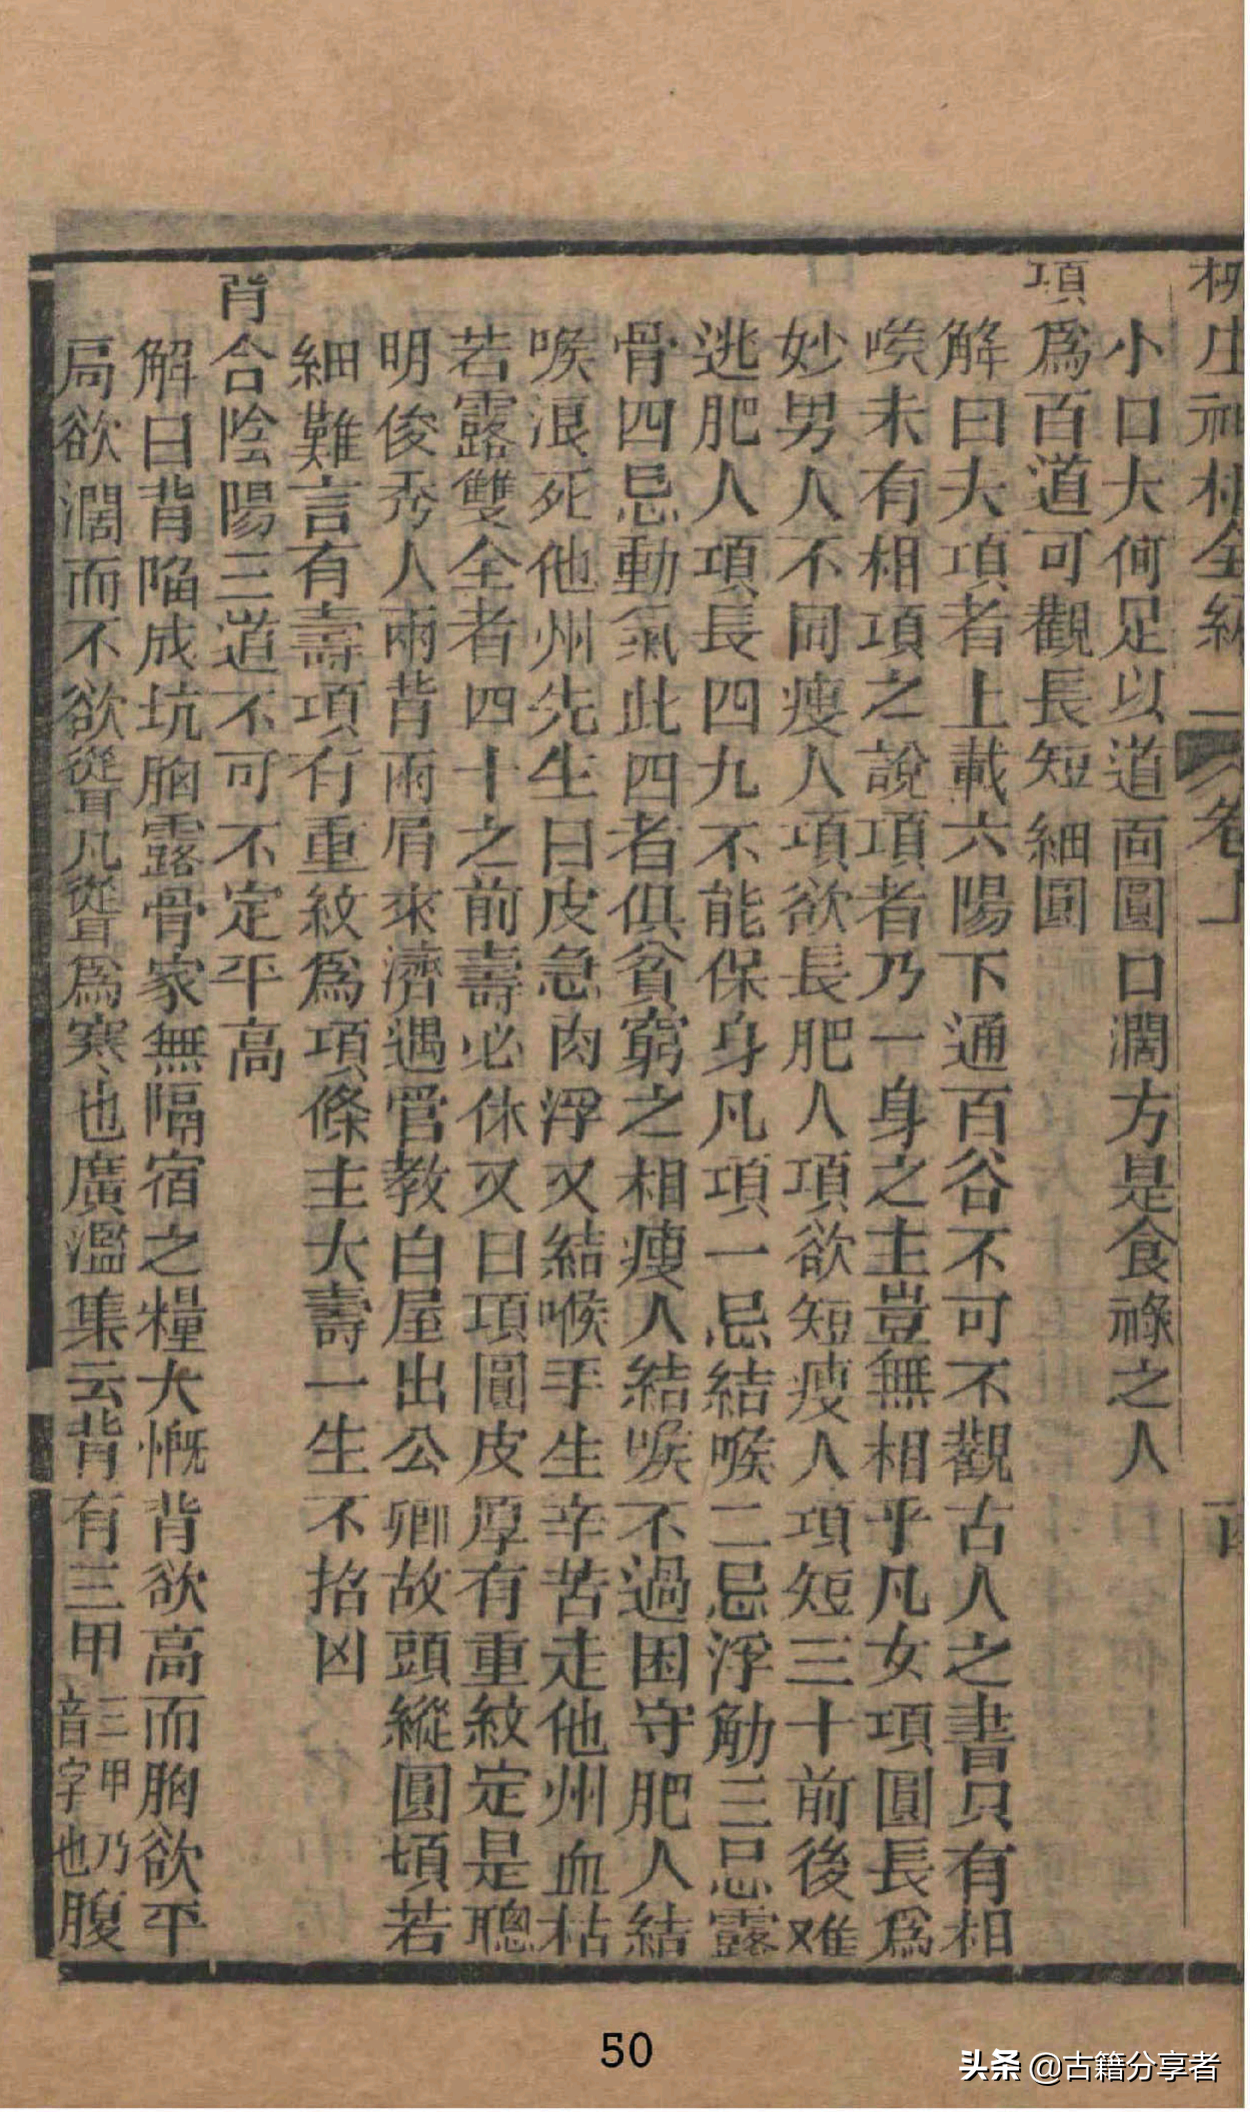 柳庄神相全編
卷上
小口大何足以道面圓口濶方是食祿之人
項爲百道可觀長短細圓
解曰大項者上載六陽下通百谷不可不觀古人之書只有相
㬋未有相項之說項者乃一身之主豈無相乎凡女項圓長爲
妙男人不同瘦人項欲長肥人項欲短瘦人項短三十前後难
逃肥人項長四九不能保身凡項一忌結喉二忌浮觔三忌露
骨四忌動氣此四者俱貧窮之相瘦人結喉不過困守肥人結
喉浪死他州先生曰皮急肉浮又結喉手生辛苦走他州血枯
若露雙全者四十之前壽必休又曰項圓皮厚有重紋定是聰
明俊秀人兩背兩肩來濟遇官教白屋出公卿故頭縱圓頃若
細難言有壽項有重紋爲項條主大壽一生不招凶
背合陰陽三道不可不定平高
解曰背陷成坑胸露骨家無隔宿之糧大慨背欲高而胸欲平
局欲濶而不欲聳凡聳爲寒也廣濫集云背有三甲三甲乃音字也腹
50
头条 @古籍分享者